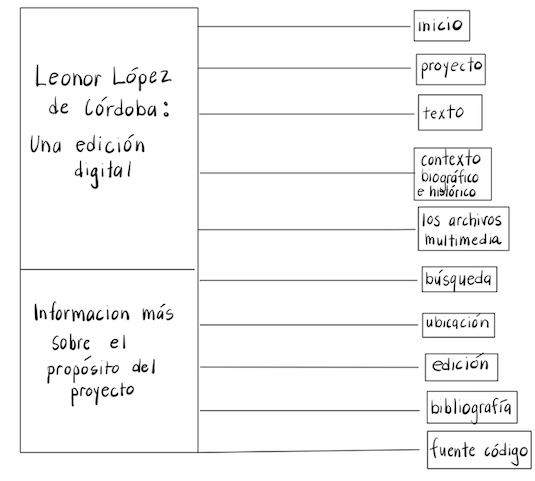 Leonor López
de Córdoba:
Una edición
digital
Informacion más
sobre el
propósito del
proyecto
inicio
proyecto
texto
contexto
biográfico
e histórico
los archivos
multimedia
búsqueda
ubicación
edición
bibliografía
fuente código